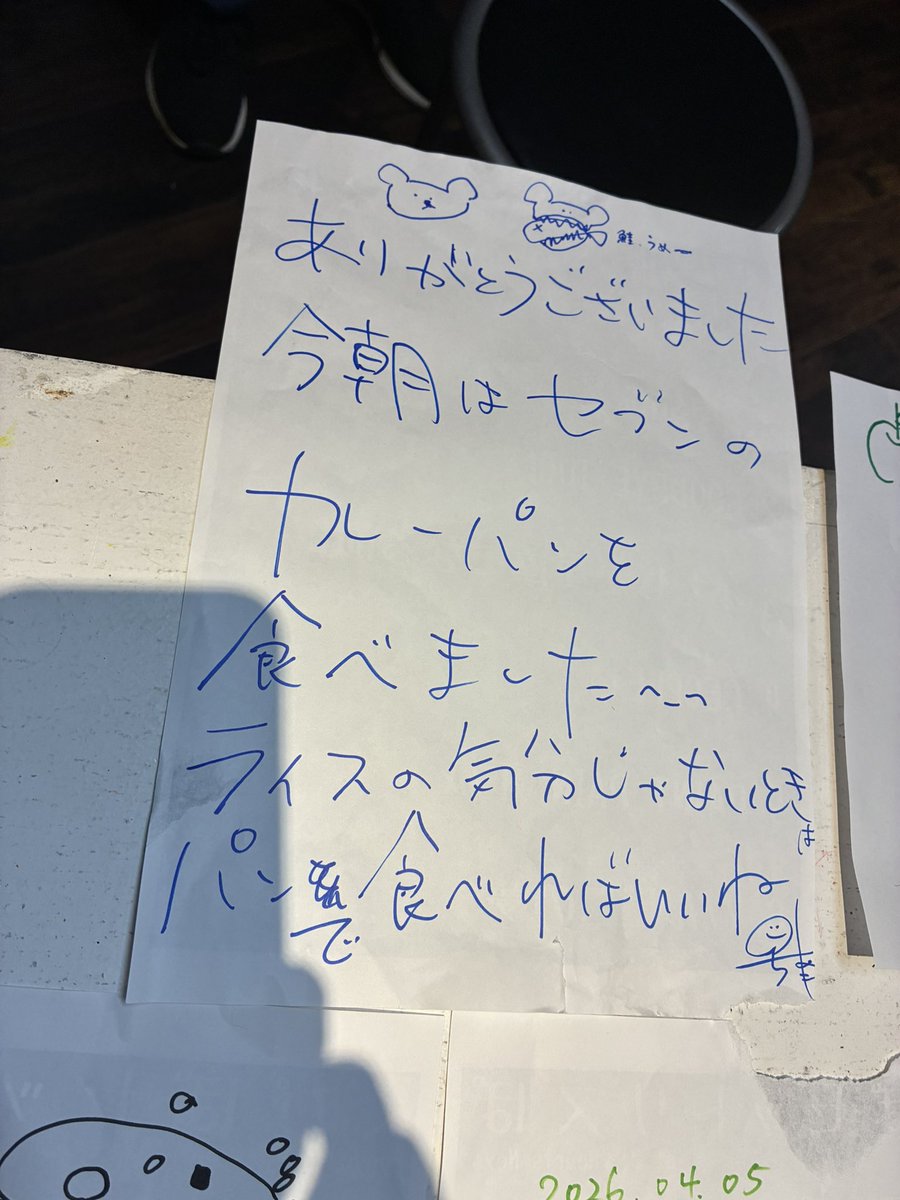 鮭、うめー
ありがとうございました
今朝はセブンの
カレーパンを
食べました〜〜
ライスの気分じゃないときは
パンで食べればいいね
2026.04.05